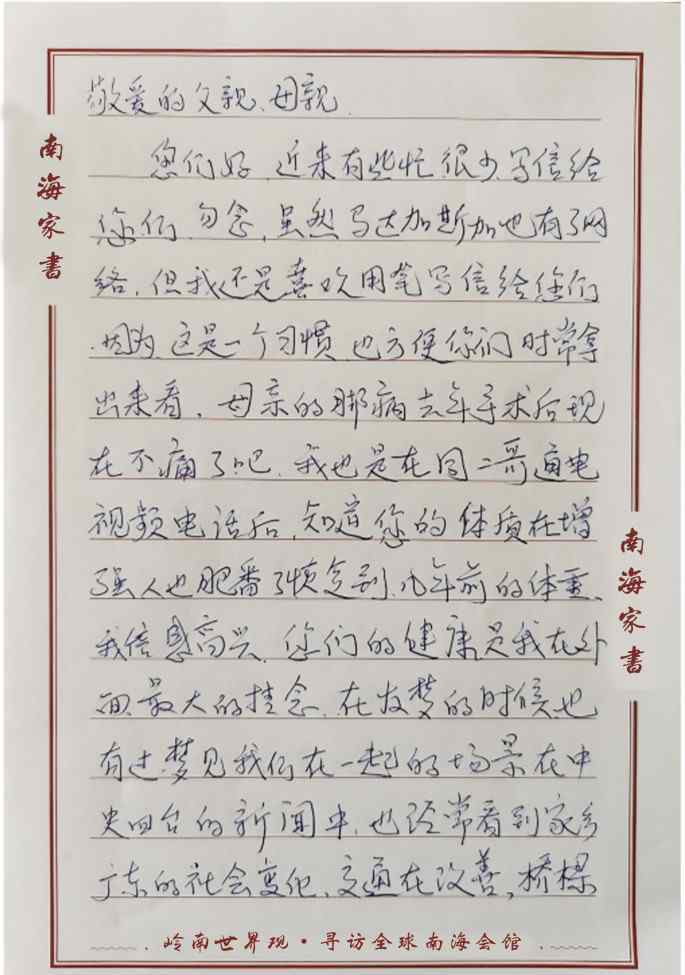 敬爱的父亲、母亲
南海家書
您们好，近来有些忙很少写信给
您们，勿念，虽然马达加斯加也有了网
络，但我还是喜欢用笔写信给您们
因为，这是一个习惯，也方便你们时常拿
出来看，母亲的脚病去年手术后现
在不痛了吧，我也是在同二哥通电
视频电话后，知道您的体质在增
强人也肥番了恢复到几年前的体重、
我倍感高兴，您们的健康是我在外
面最大的挂念，在发梦的时候也
有过梦见我们在一起的场景在中
央四台的新闻中，也经常看到家乡
广东的社会变化，交通在改善，桥樑
南海家書
岭南世界观·寻访全球南海会馆